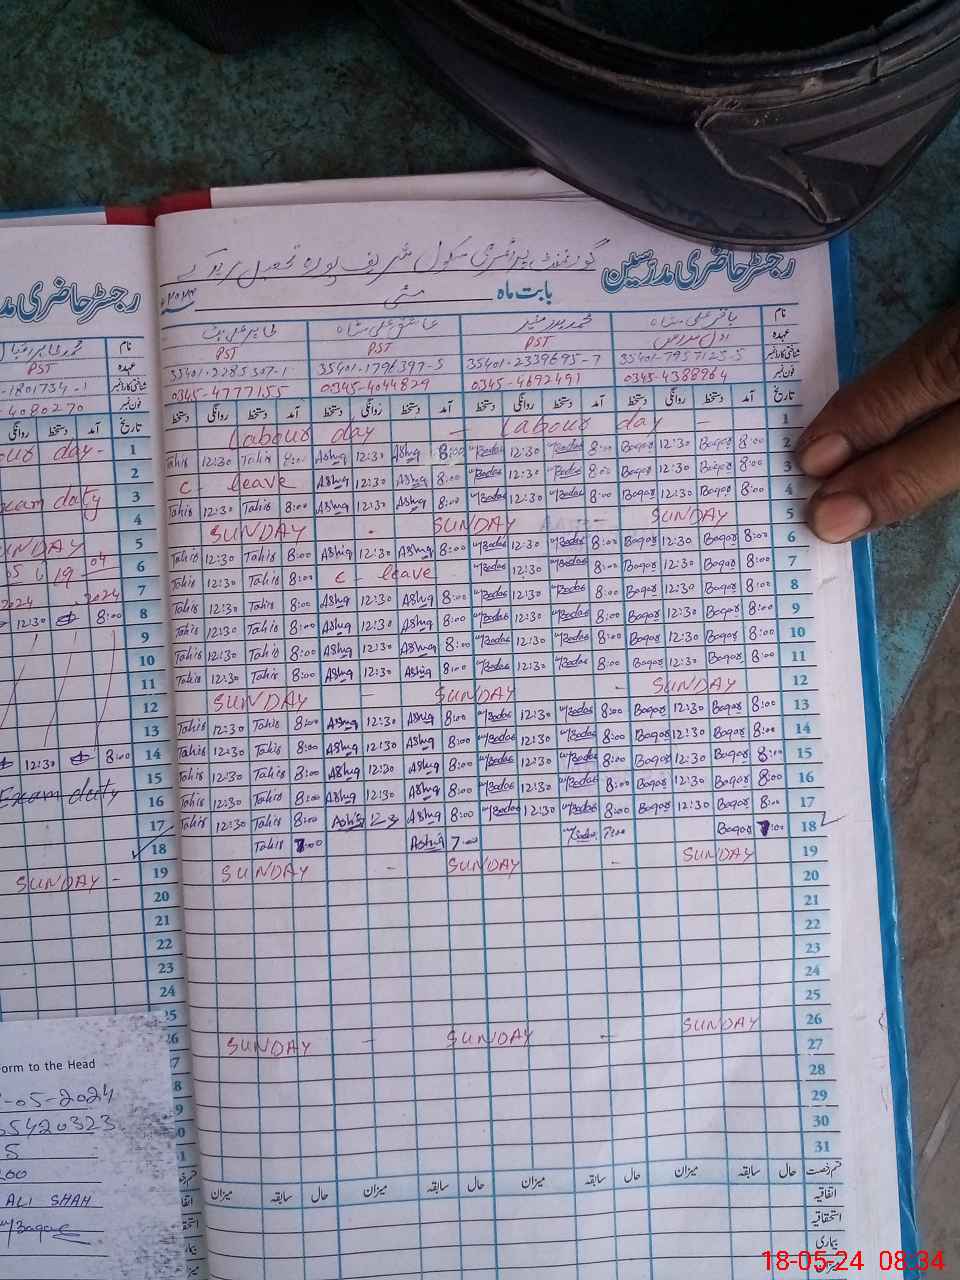 رجسٹر حاضری مدرسین
گورنمنٹ پرائمری سکول شریف پورہ تحصیل
بابت ماہ مئی
نام باقر علی شاہ عاشق علی شاہ طاہر علی بٹ
عہدہ PST PST PST
شناختی کارڈ نمبر 35401-7957125-5 35401-2339695-7 35401-1796397-5 35401-2285307-1
فون نمبر 0345-4388964 0345-4692491 0345-4044829 0345-4777155
تاریخ آمد دستخط روانگی دستخط آمد دستخط روانگی دستخط آمد دستخط روانگی دستخط آمد دستخط روانگی دستخط
Labour day - Labour day - 1
Tahir 12:30 Tahir 8:00 Ashiq 12:30 Ashiq 8:00 12:30 8:00 Baqar 12:30 Baqar 8:00 2
C - leave Ashiq 12:30 Ashiq 8:00 12:30 8:00 Baqar 12:30 Baqar 8:00 3
Tahir 12:30 Tahir 8:00 Ashiq 12:30 Ashiq 8:00 12:30 8:00 Baqar 12:30 Baqar 8:00 4
SUNDAY - SUNDAY - SUNDAY 5
Tahir 12:30 Tahir 8:00 Ashiq 12:30 Ashiq 8:00 12:30 8:00 Baqar 12:30 Baqar 8:00 6
Tahir 12:30 Tahir 8:00 C - leave 12:30 8:00 Baqar 12:30 Baqar 8:00 7
Tahir 12:30 Tahir 8:00 Ashiq 12:30 Ashiq 8:00 12:30 8:00 Baqar 12:30 Baqar 8:00 8
Tahir 12:30 Tahir 8:00 Ashiq 12:30 Ashiq 8:00 12:30 8:00 Baqar 12:30 Baqar 8:00 9
Tahir 12:30 Tahir 8:00 Ashiq 12:30 Ashiq 8:00 12:30 8:00 Baqar 12:30 Baqar 8:00 10
Tahir 12:30 Tahir 8:00 Ashiq 12:30 Ashiq 8:00 12:30 8:00 Baqar 12:30 Baqar 8:00 11
SUNDAY - SUNDAY - SUNDAY 12
Tahir 12:30 Tahir 8:00 Ashiq 12:30 Ashiq 8:00 12:30 8:00 Baqar 12:30 Baqar 8:00 13
Tahir 12:30 Tahir 8:00 Ashiq 12:30 Ashiq 8:00 12:30 8:00 Baqar 12:30 Baqar 8:00 14
Tahir 12:30 Tahir 8:00 Ashiq 12:30 Ashiq 8:00 12:30 8:00 Baqar 12:30 Baqar 8:00 15
Tahir 12:30 Tahir 8:00 Ashiq 12:30 Ashiq 8:00 12:30 8:00 Baqar 12:30 Baqar 8:00 16
Tahir 12:30 Tahir 8:00 Ashiq Ashiq 8:00 12:30 8:00 Baqar 12:30 Baqar 8:00 17
Tahir 7:00 Ashiq 7:00 7:00 Baqar 7:00 18
SUNDAY - SUNDAY - SUNDAY 19
20
21
22
23
24
25
SUNDAY - SUNDAY - SUNDAY 26
27
28
29
30
31
قسم رخصت حال سابقہ میزان حال سابقہ میزان حال سابقہ میزان حال سابقہ میزان
اتفاقیہ
استحقاقیہ
بیماری
میزان
رجسٹر حاضری مد
نام
عہدہ PST
شناختی کارڈ نمبر -1801734-1
فون نمبر 4080270
تاریخ آمد دستخط روانگی
our day- 1
2
Exam duty 3
4
SUNDAY 5
6
2024 7
12:30 8:00 8
9
10
11
12
13
12:30 8:00 14
15
Exam duty 16
17
18
SUNDAY - 19
20
21
22
23
24
25
form to the Head
-05-2024
5420323
5
00
ALI SHAH
18-05-24 08:34